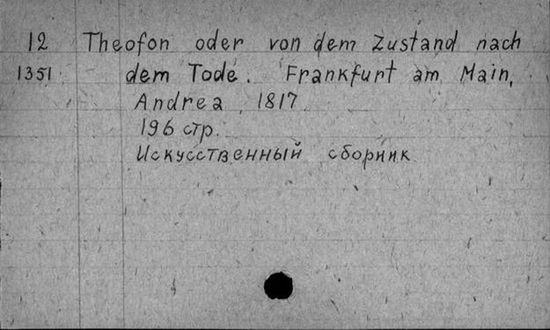 12 Theofon oder von dem Zustand nach
1351 dem Tode. Frankfurt am Main,
Andrea 1817
196 стр.
Искусственный сборник